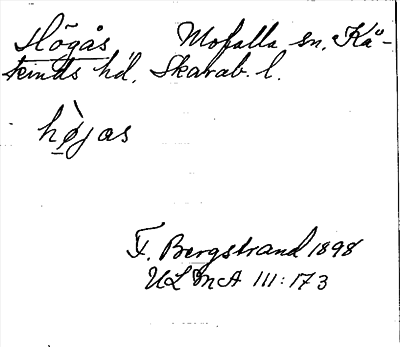 Högås Mofalla sn. Kå-
kinds hd. Skarab. l.
hø̀jas
F. Bergstrand 1898
ULMA III:173